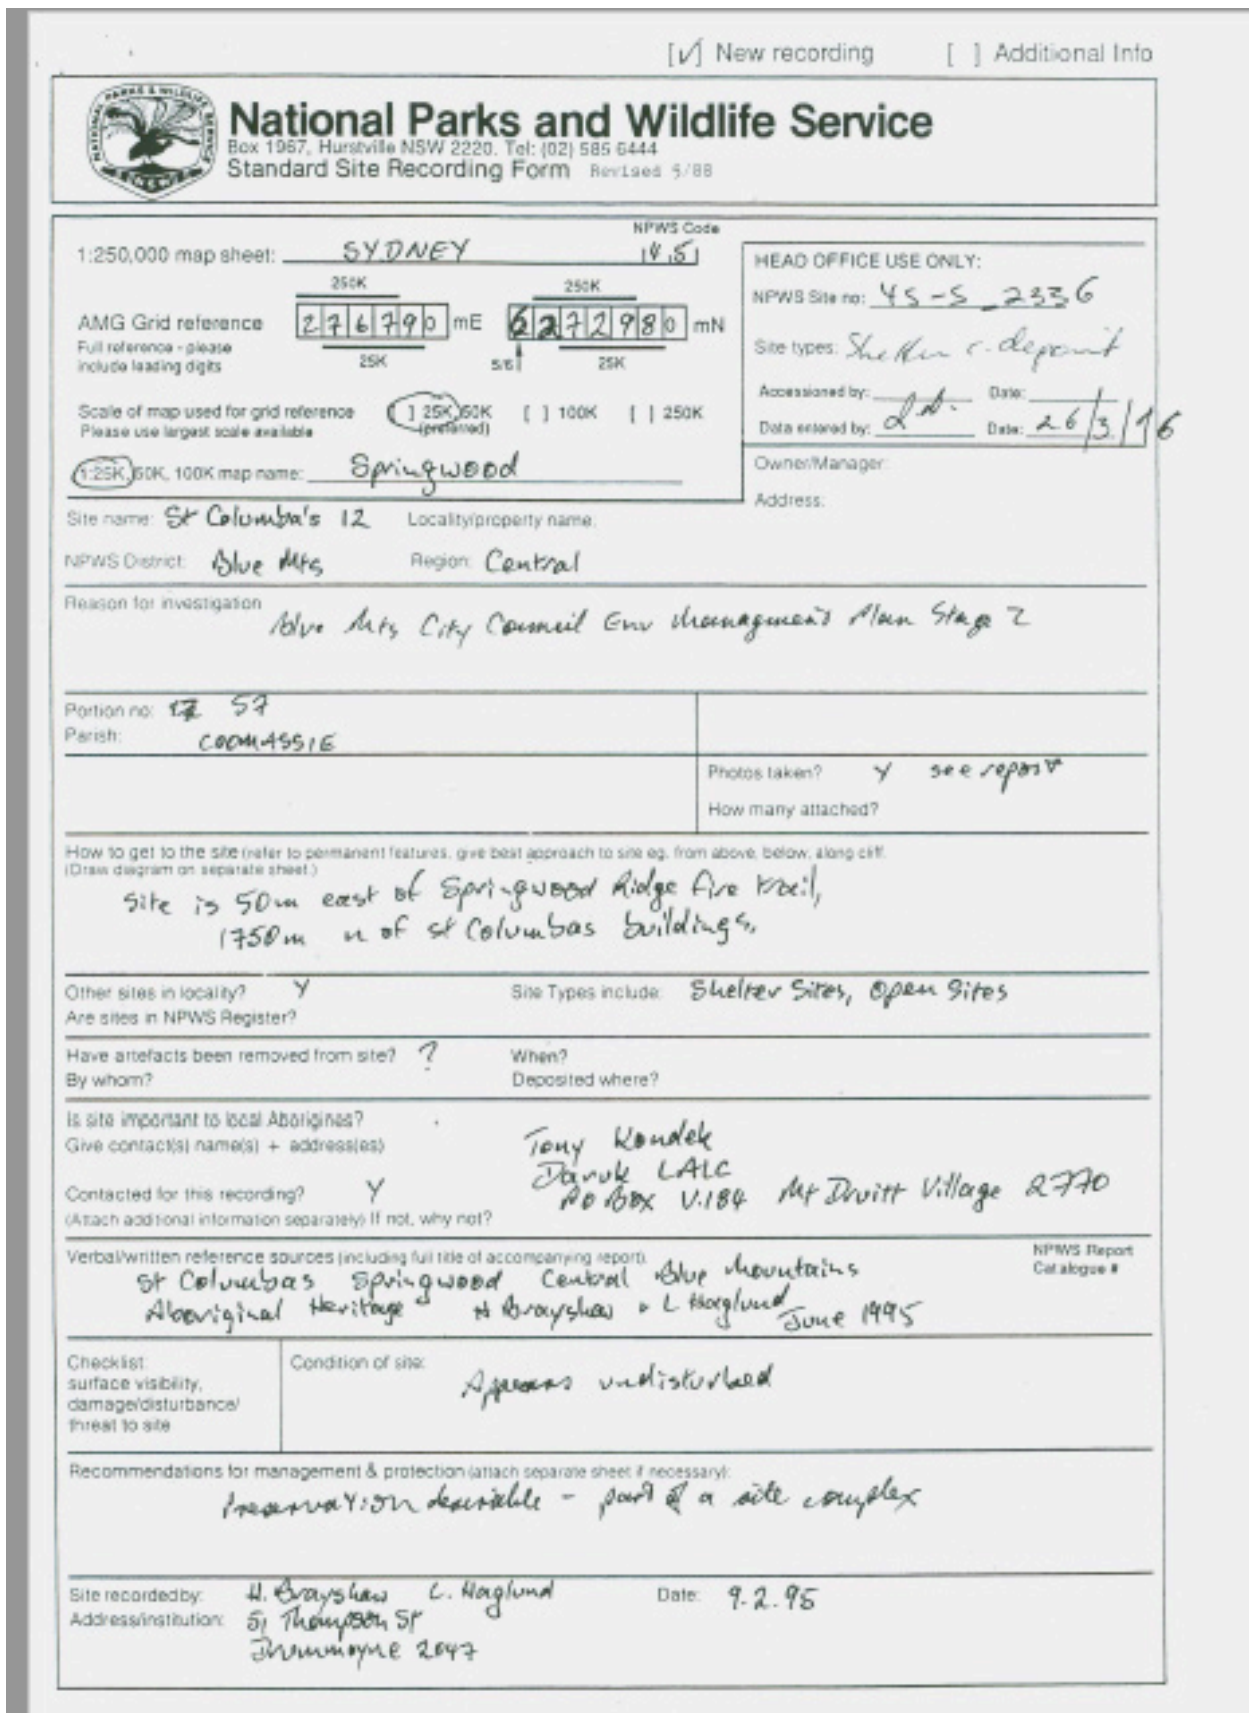 [✓] New recording [ ] Additional Info
NATIONAL PARKS & WILDLIFE SERVICE N.S.W.
National Parks and Wildlife Service
Box 1967, Hurstville NSW 2220. Tel: (02) 585 6444
Standard Site Recording Form Revised 5/88
NPWS Code
1:250,000 map sheet: SYDNEY
HEAD OFFICE USE ONLY:
250K 250K
NPWS Site no: 45-5-2336
AMG Grid reference 276790 mE 6272980 mN
Full reference - please
include leading digits
25K 5/6 25K
Site types: Shelter c. deposit
Accessioned by: Date:
Scale of map used for grid reference [ ] 25K, 50K [ ] 100K [ ] 250K
Please use largest scale available (preferred)
Data entered by: Date: 26/3/96
1:25K, 50K, 100K map name: Springwood
Owner/Manager:
Address:
Site name: St Columba's 12 Locality/property name:
NPWS District: Blue Mts Region: Central
Reason for investigation
Blue Mts City Council Env Managment Plan Stage 2
Portion no: 57
Parish: COOMASSIE
Photos taken? Y see report
How many attached?
How to get to the site (refer to permanent features, give best approach to site eg. from above, below, along cliff.
(Draw diagram on separate sheet.)
Site is 50m east of Springwood Ridge fire trail,
1750m n of St Columbas buildings.
Other sites in locality? Y Site Types include: Shelter Sites, Open Sites
Are sites in NPWS Register?
Have artefacts been removed from site? ? When?
By whom? Deposited where?
Is site important to local Aborigines?
Give contact(s) name(s) + address(es)
Tony Kondek
Daruk LALC
Contacted for this recording? Y PO Box V.184 Mt Druitt Village 2770
(Attach additional information separately) If not, why not?
Verbal/written reference sources (including full title of accompanying report).
NPWS Report
Catalogue #
St Columbas Springwood Central Blue Mountains
Aboriginal Heritage H Brayshaw & L Haglund June 1995
Checklist:
surface visibility,
damage/disturbance/
threat to site
Condition of site:
Appears undisturbed
Recommendations for management & protection (attach separate sheet if necessary):
Preservation desirable - part of a site complex
Site recorded by: H. Brayshaw L. Haglund Date: 9.2.95
Address/institution: 51 Thompson St
Drummoyne 2047